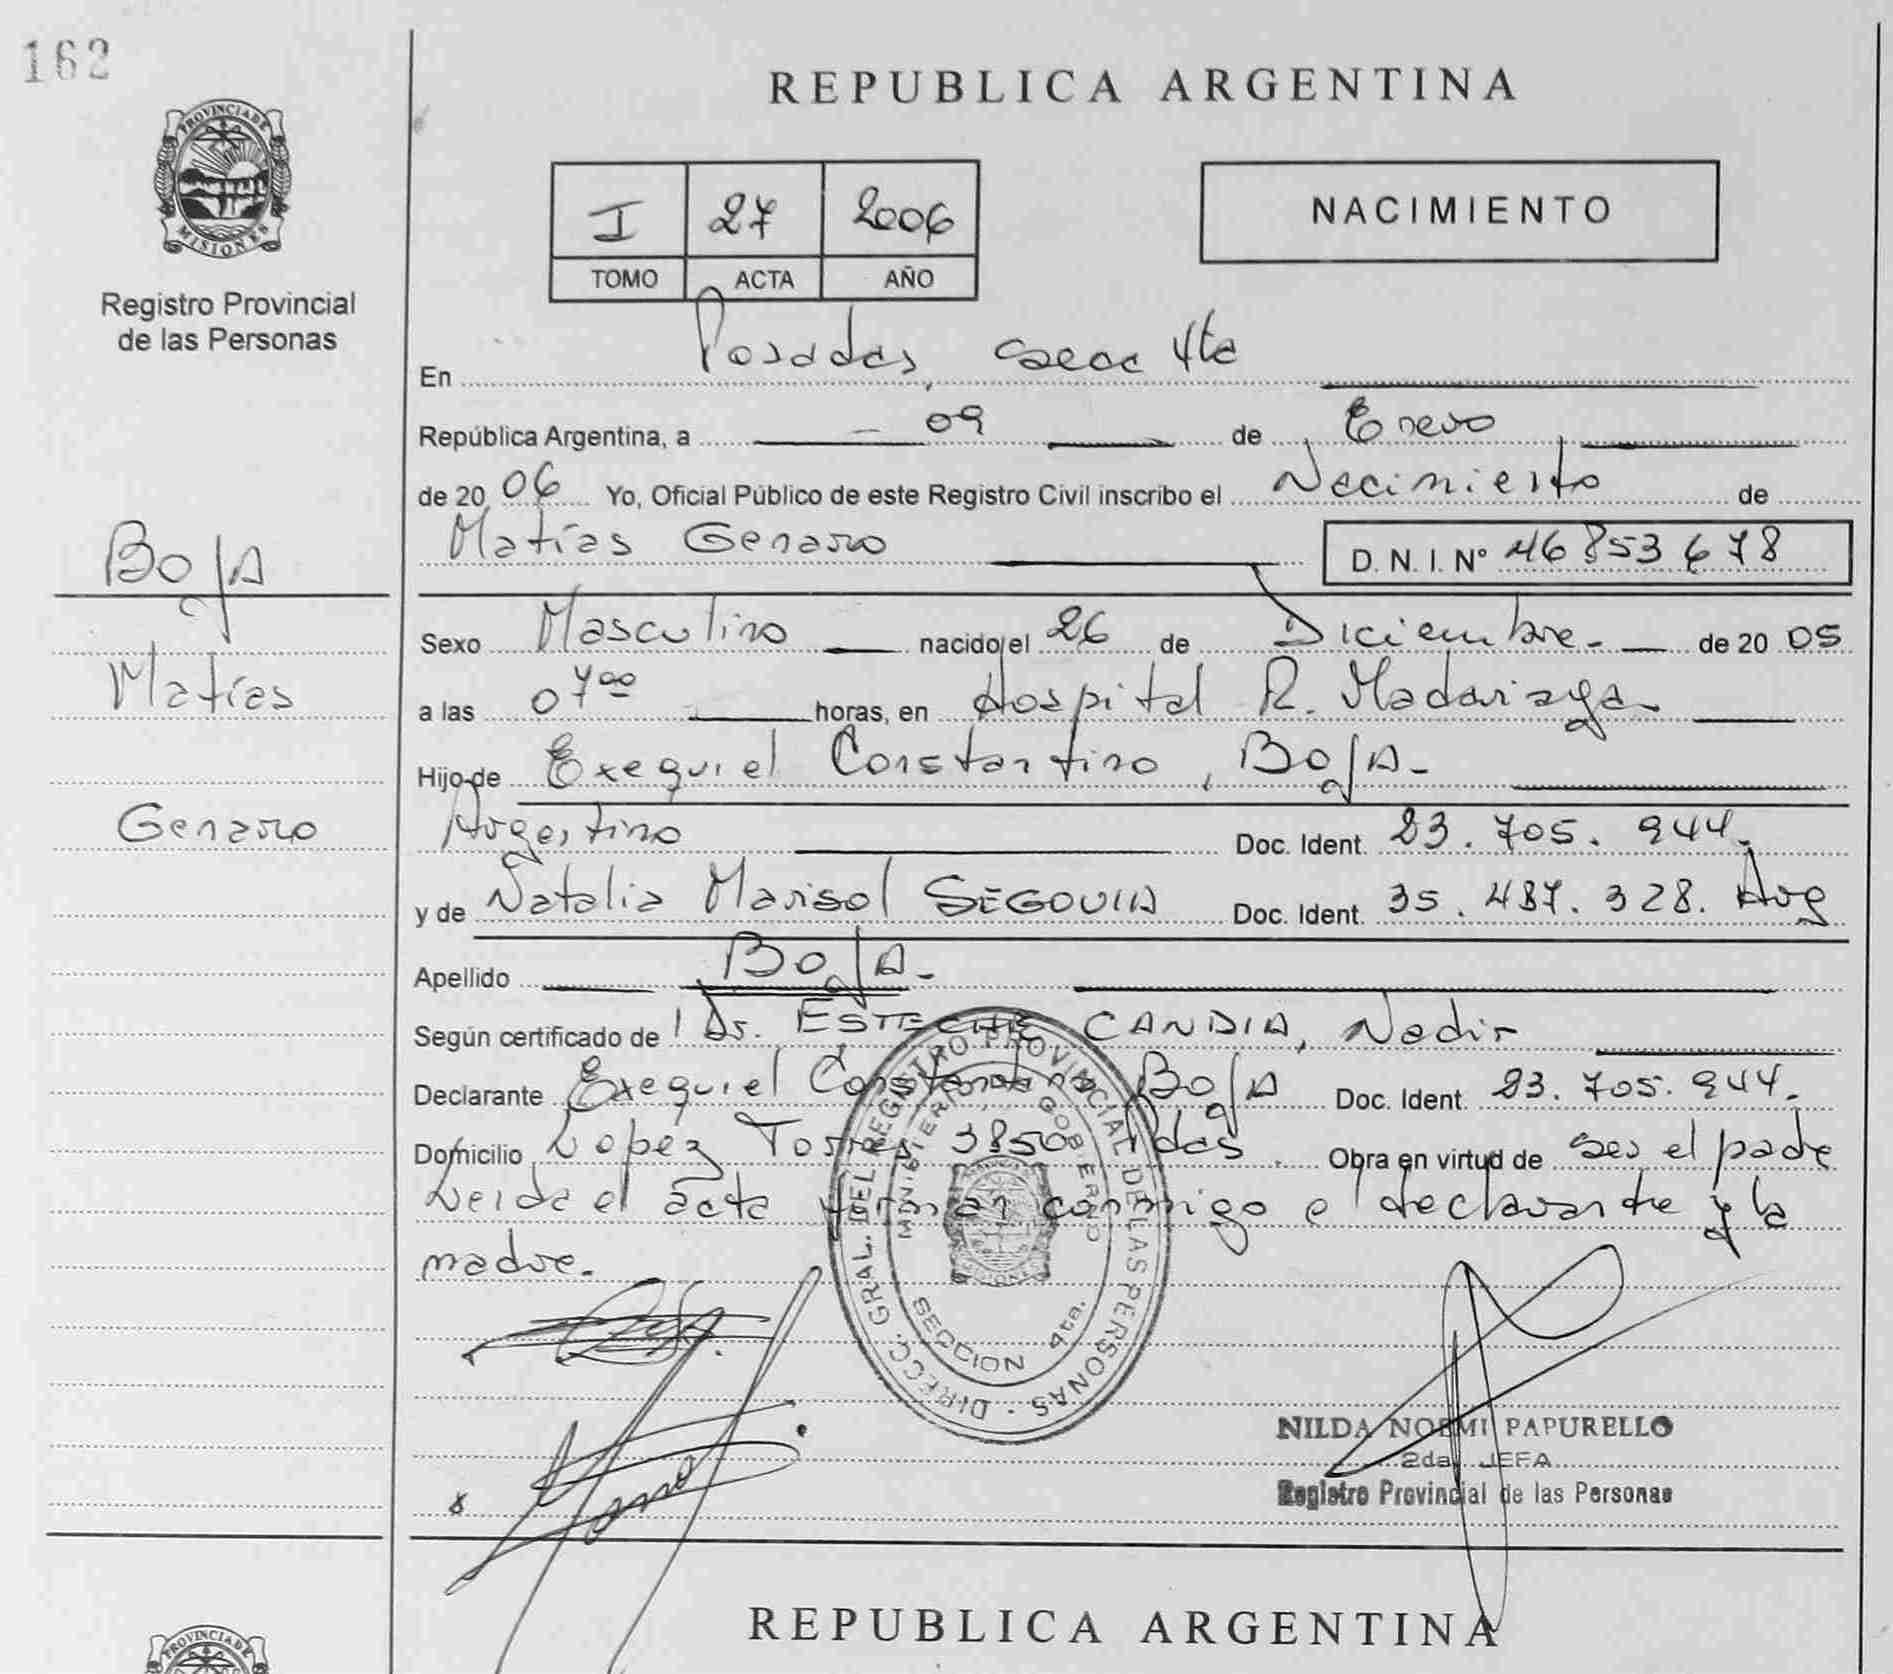 162
PROVINCIA DE
MISIONES
Registro Provincial
de las Personas
BOJA
Matías
Genaro
REPUBLICA ARGENTINA
I 27 2006
TOMO ACTA AÑO
NACIMIENTO
En Posadas, Secc 4ta
República Argentina, a 09 de Enero
de 20 06 Yo, Oficial Público de este Registro Civil inscribo el Nacimiento de
Matías Genaro D. N. I. N° 46853678
Sexo Masculino nacido el 26 de Diciembre. de 20 05
a las 07 00 horas, en Hospital R. Madariaga
Hijo de Exequiel Constantino, BOJA
Argentino Doc. Ident. 23.705.944.
y de Natalia Marisol SEGOVIA Doc. Ident. 35.487.328. Arg
Apellido BOJA
Según certificado de Dr. ESTECHE CANDIA, Nadir
Declarante Exequiel Constantino BOJA Doc. Ident. 23.705.944.
Domicilio Lopez Torres 3850 Pdas. Obra en virtud de ser el padre
Leida el acta firman conmigo el declarante y la
madre.
DIRECC. GRAL. DEL REGISTRO PROVINCIAL DE LAS PERSONAS
MINISTERIO GOBIERNO
SECCION 4ta.
NILDA NOEMI PAPURELLO
2da. JEFA
Registro Provincial de las Personas
REPUBLICA ARGENTINA
PROVINCIA DE